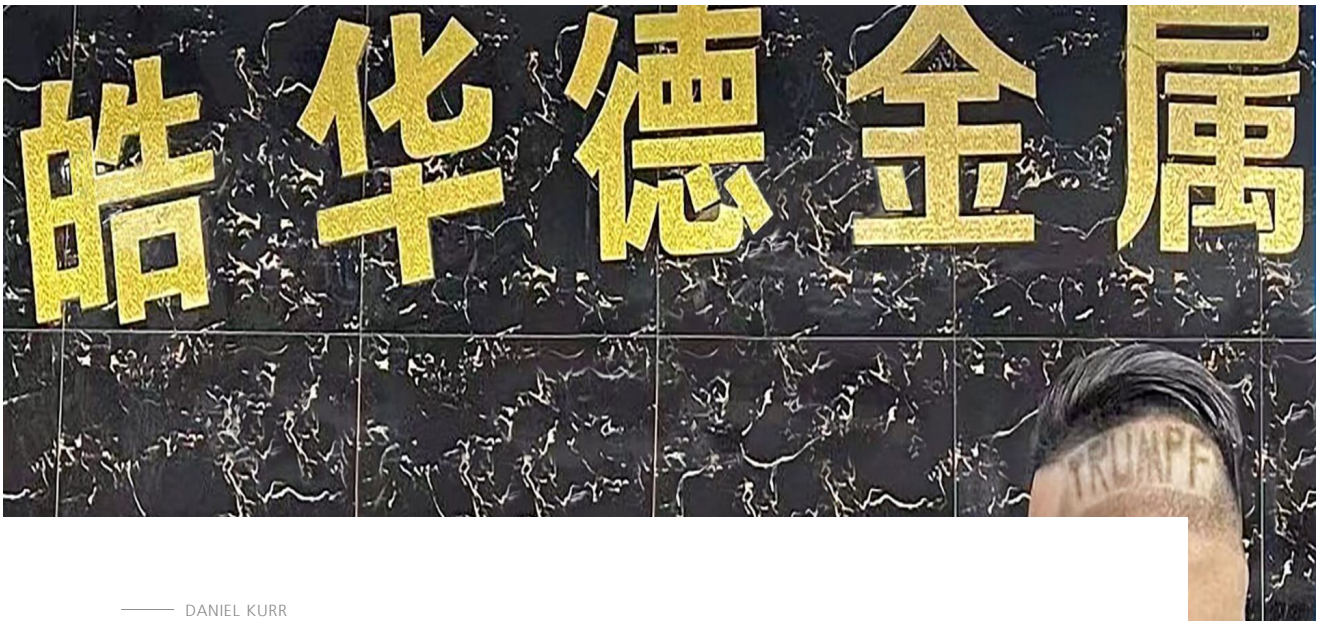 皓华德金属
TRUMPF
DANIEL KURR